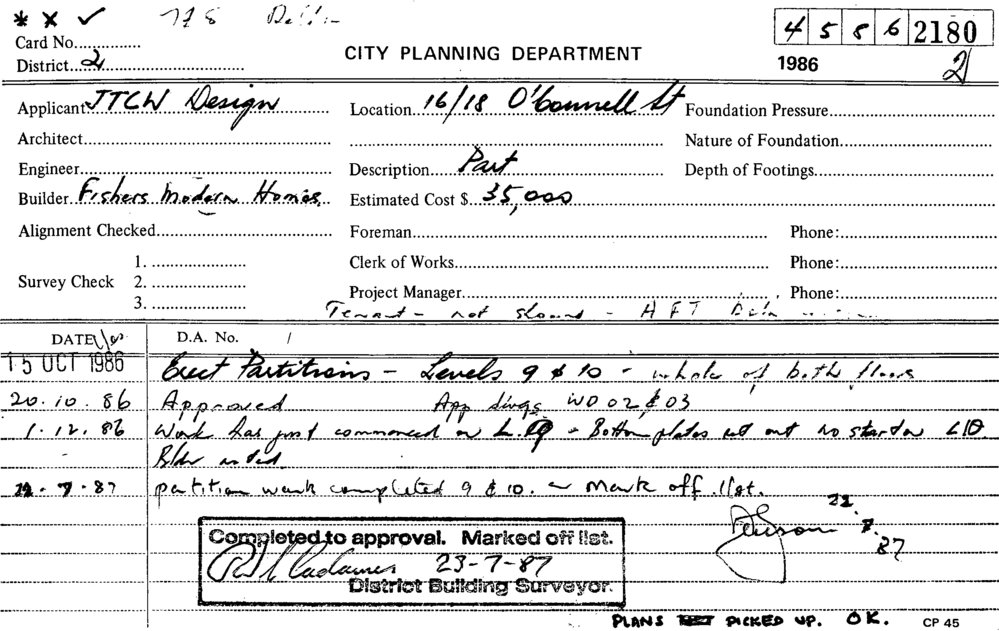 * X ✓ 778
4 5 8 6 2180
Card No...............
District...2
CITY PLANNING DEPARTMENT
1986 2
Applicant JTCW Design Location...16/18 O'Connell St Foundation Pressure
Architect Nature of Foundation
Engineer Description...Part Depth of Footings
Builder Fishers Modern Homes. Estimated Cost $...35,000
Alignment Checked Foreman Phone:
Survey Check 1. Clerk of Works Phone:
2.
3. Project Manager Phone:
Tenant - not shown - AFT
DATE D.A. No. /
15 OCT 1986 Erect Partitions - Levels 9 & 10 - whole of both floors
20.10.86 Approved App dwgs WD 02 & 03
1.12.86 Work has just commenced on L.9 - Bottom plates set out no start on L10
Bldr noted.
22.7.87 partition work completed 9 & 10. - Mark off list.
22.7.87
Completed to approval. Marked off list.
23-7-87
District Building Surveyor.
PLANS PICKED UP. OK. CP 45